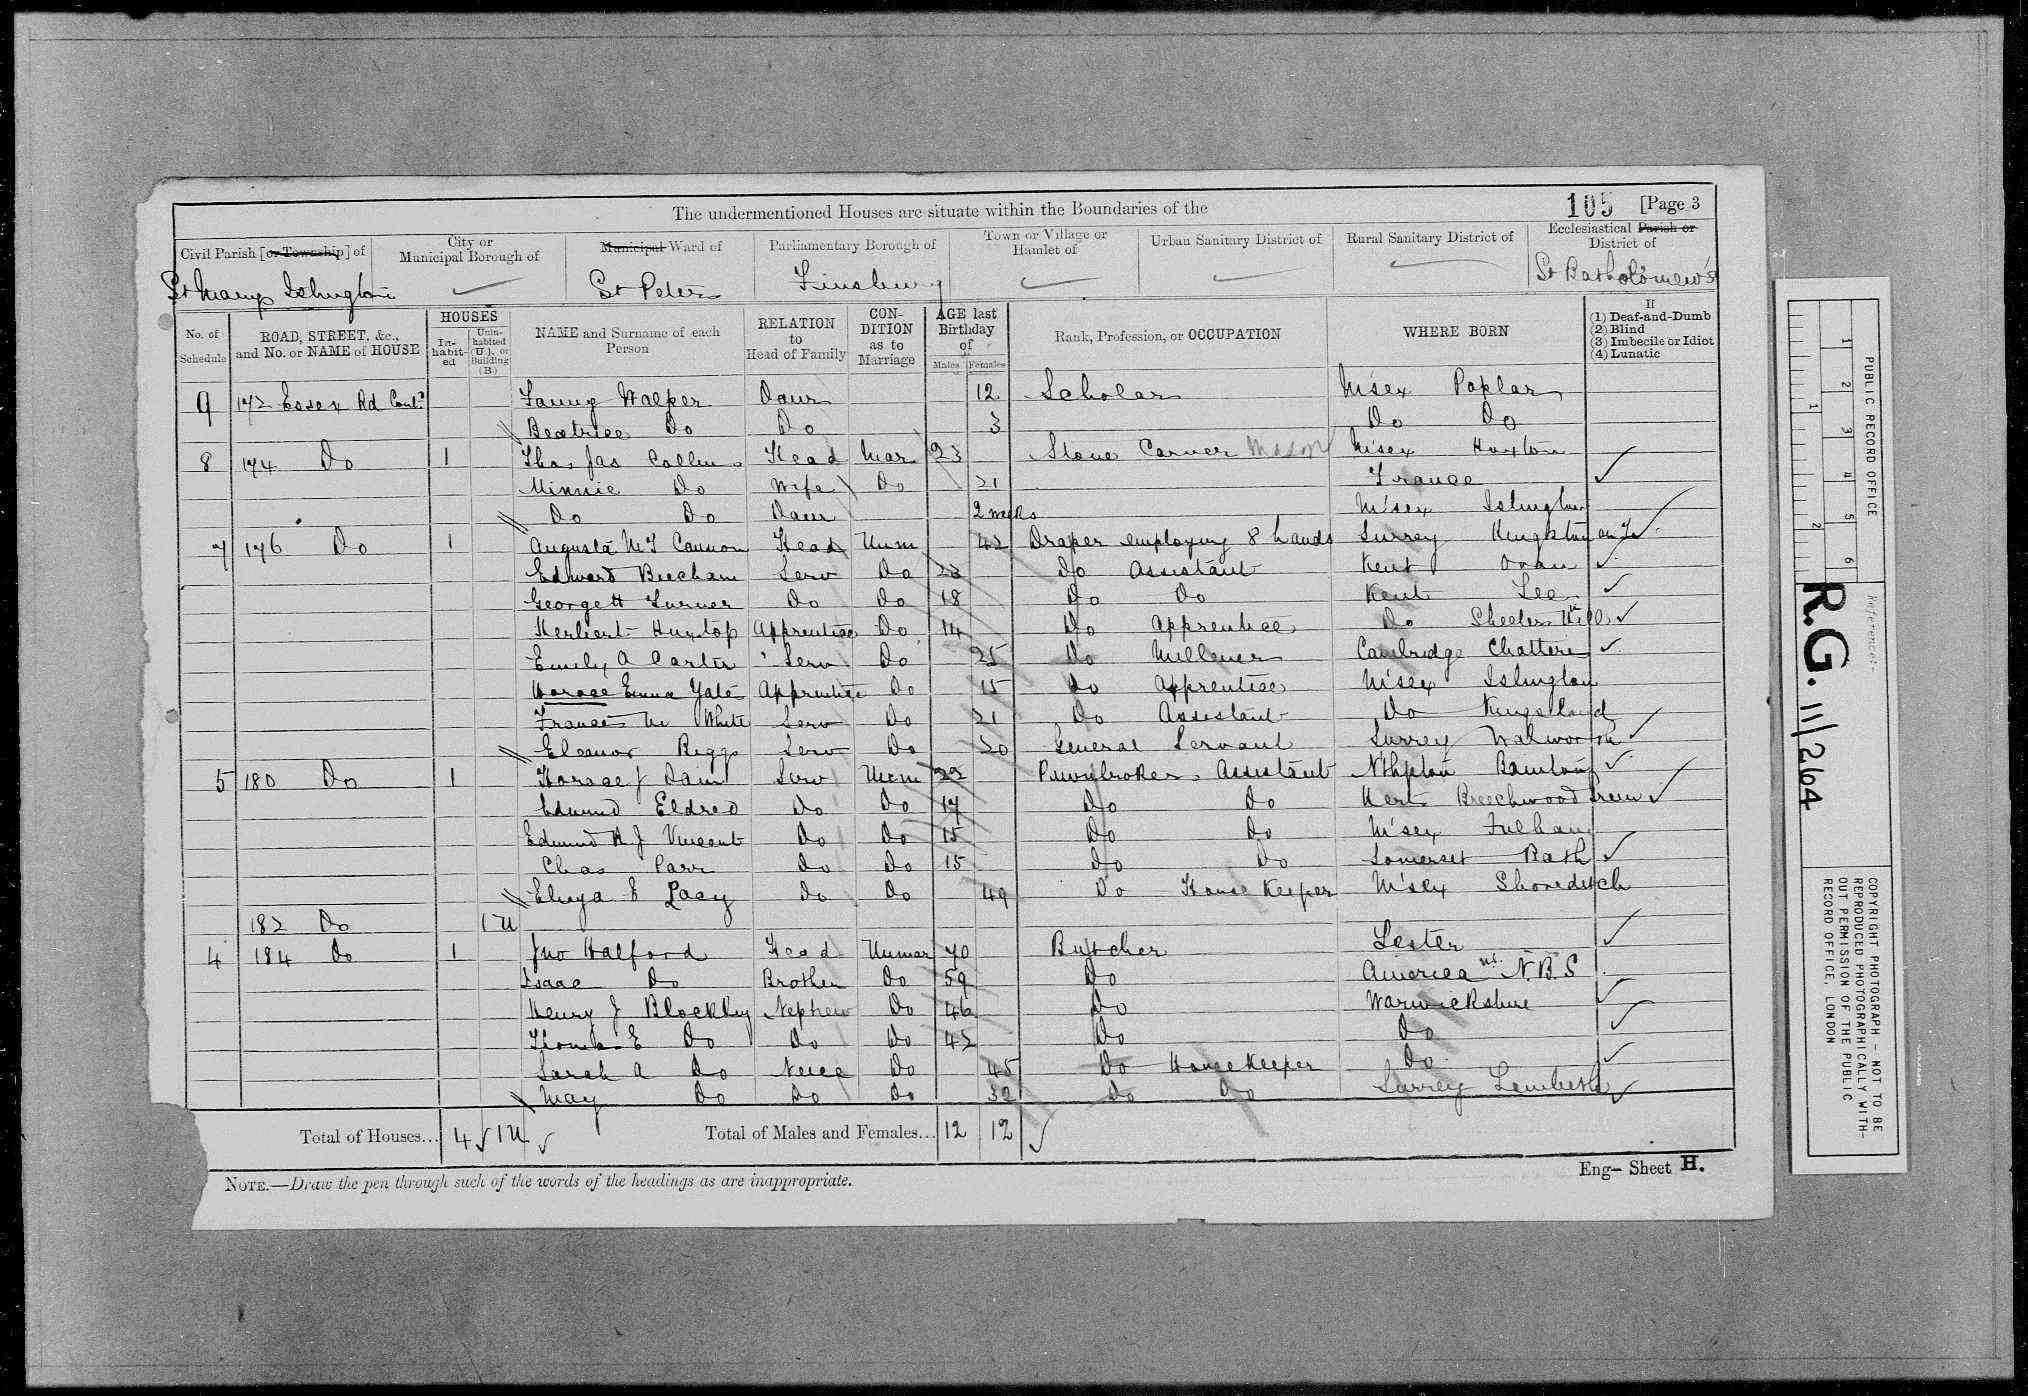 The undermentioned Houses are situate within the Boundaries of the
105 [Page 3
Civil Parish [or Township] of
City or Municipal Borough of
Municipal Ward of
Parliamentary Borough of
Town or Village or Hamlet of
Urban Sanitary District of
Rural Sanitary District of
Ecclesiastical Parish or District of
St Marys Islington St Peters Finsbury St Bartholomew's
No. of Schedule
ROAD, STREET, &c., and No. or NAME of HOUSE
HOUSES
In-habit-ed
Unin-habited (U.), or Building (B.)
NAME and Surname of each Person
RELATION to Head of Family
CON-DITION as to Marriage
AGE last Birthday of
Males Females
Rank, Profession, or OCCUPATION
WHERE BORN
If
(1) Deaf-and-Dumb
(2) Blind
(3) Imbecile or Idiot
(4) Lunatic
9 172 Essex Rd Contd Fanny Walper Daur 12 Scholar M'sex Poplar
Beatrice Do Do 3 Do Do
8 174 Do 1 Thos Jas Collins Head Mar 23 Stone Carver Mason M'sex Hoxton
Minnie Do Wife Do 21 France
Do Do Daur 2 weeks M'sex Islington
7 176 Do 1 Augusta Cannon Head Unm 42 Draper employing 8 hands Surrey Kingston on T
Edward Beecham Serv Do 23 Do Assistant Kent
George H Turner Do Do 18 Do Do Kent Lee
Herbert Apprentice Do 14 Do Apprentice Do Shooters Hill
Emily A Carter Serv Do 25 Do Millener Cambridge Chatteris
Horace Emma Yate Apprentice Do 15 Do Apprentice M'sex Islington
Frances M White Serv Do 21 Do Assistant Do Kingsland
Eleanor Biggs Serv Do 20 General Servant Surrey Walworth
5 180 Do 1 Horace J Serv Unm 22 Pawnbrokers Assistant N'thpton
Edmund Eldred Do Do 17 Do Do Herts Breechwood Green
Edmund A J Vincent Do Do 15 Do Do M'sex Fulham
Chas Parr Do Do 15 Do Do Somerset Bath
Elisya E Lacy Do Do 49 Do House Keeper M'sex Shoreditch
182 Do 1 U
4 184 Do 1 Jno Halford Head Unmar 70 Butcher Lester
Isaac Do Brother Do 59 Do America N.B.S
Henry J Blockley Nephew Do 46 Do Warwickshire
Thomas E Do Do Do 42 Do Do
Sarah A Do Neice Do 45 Do House Keeper Do
May Do Do Do 32 Do Do Surrey Lambeth
Total of Houses... 4 1U
Total of Males and Females... 12 12
NOTE.—Draw the pen through such of the words of the headings as are inappropriate.
Eng— Sheet H.
PUBLIC RECORD OFFICE
1 2 3 4 5 6
1 2
Reference:-
R.G. 11/264
COPYRIGHT PHOTOGRAPH - NOT TO BE
REPRODUCED PHOTOGRAPHICALLY WITH-
OUT PERMISSION OF THE PUBLIC
RECORD OFFICE, LONDON